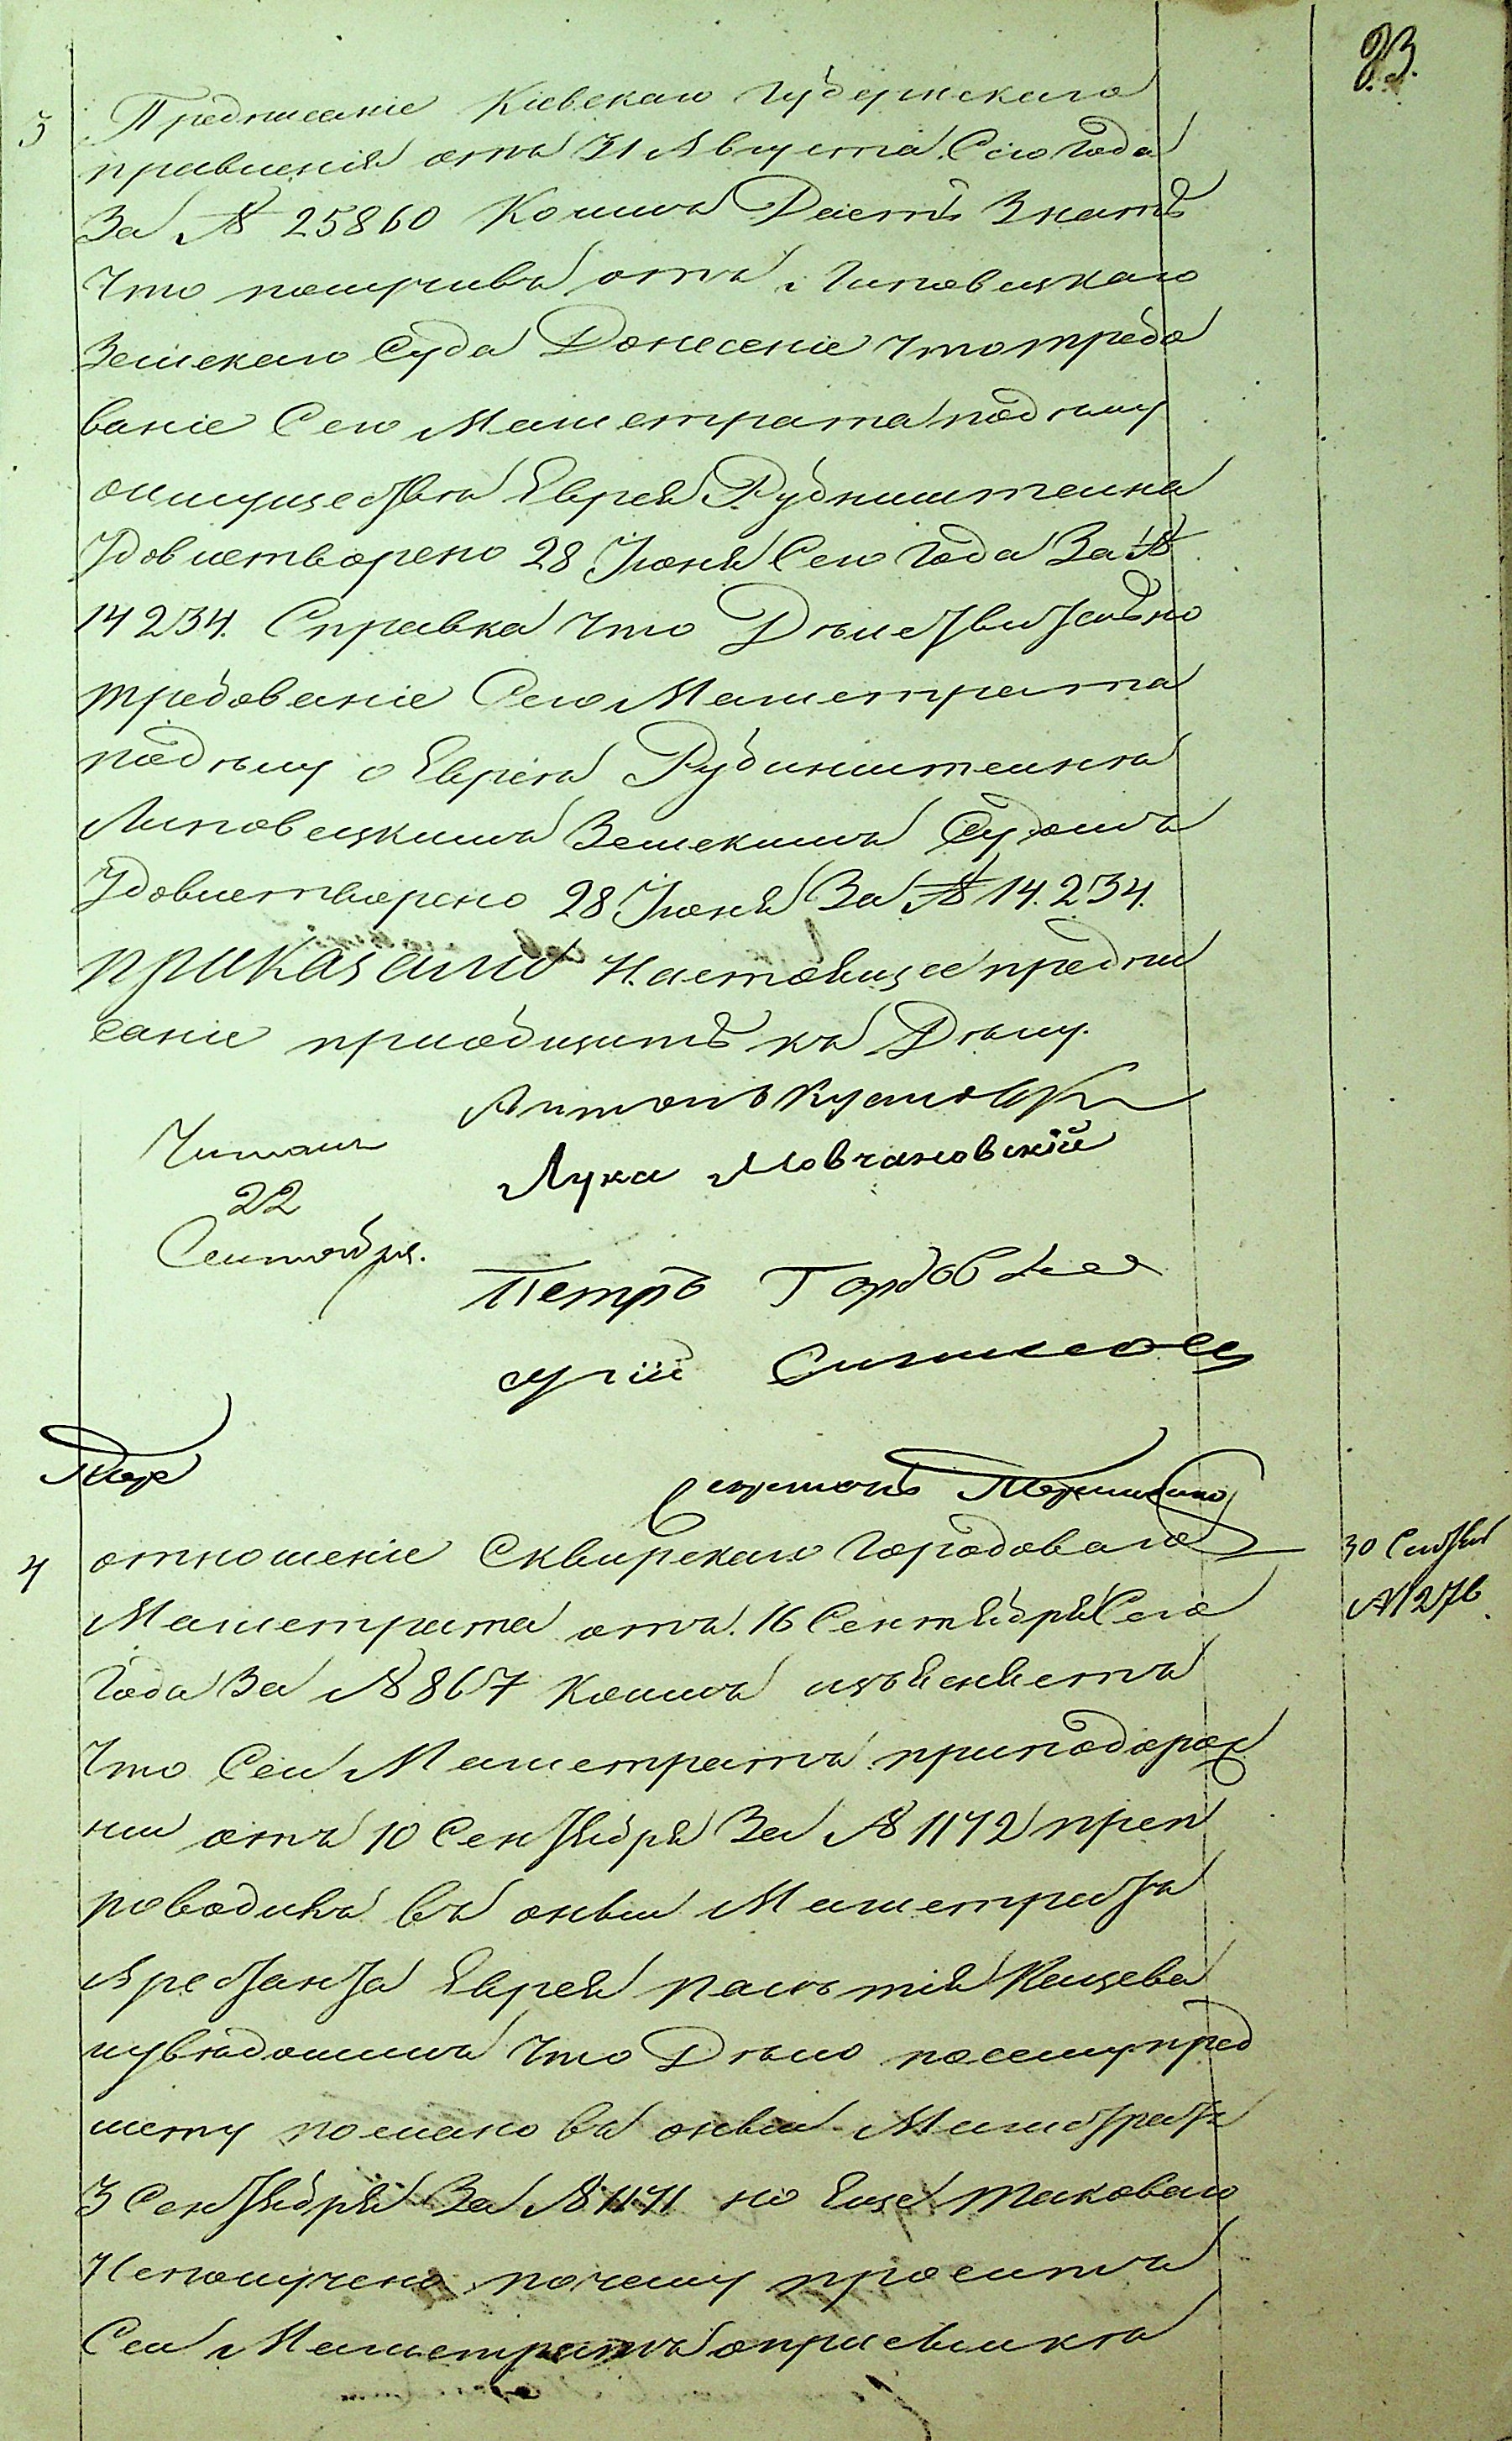 23.
3 Предписаніе Кіевскаго Губернскаго
правленія отъ 31 Августа Сего Года
За № 25860 Коимъ Даетъ Знать
Что получивъ отъ Липовецкаго
Земскаго Суда Донесеніе что требо
ваніе Сего Магистрата по дѣлу
о имуществѣ Еврея Рубинштейна
Удовлетворено 28 Іюня Сего Года За №
14234. Справка что Дѣйствительно
требованіе Сего Магистрата
по дѣлу о Евреѣ Рубинштейнѣ
Липовецкимъ Земскимъ Судомъ
Удовлетворено 28 Іюня За № 14.234.
приказали Настоящее предпи
саніе приобщить къ Дѣлу.
Антонъ
Лука Мовчановскій
Читалъ
22
Сентября.
Петръ
Секретарь
4 отношеніе Сквирскаго Городоваго
Магистрата отъ 16 Сентября Сего
Года За № 867 коимъ изъясняетъ
Что Сей Магистратъ при подорож
ни отъ 10 Сентября За № 1142 преп
роводивъ въ оный Магистратъ
Арестанта Еврея
увѣдомилъ Что Дѣло по сему пред
мету послано въ оный Магистратъ
3 Сентября За № 1141 но Еще таковаго
Не получено почему проситъ
Сей Магистратъ о присылкѣ
30
№ 1276